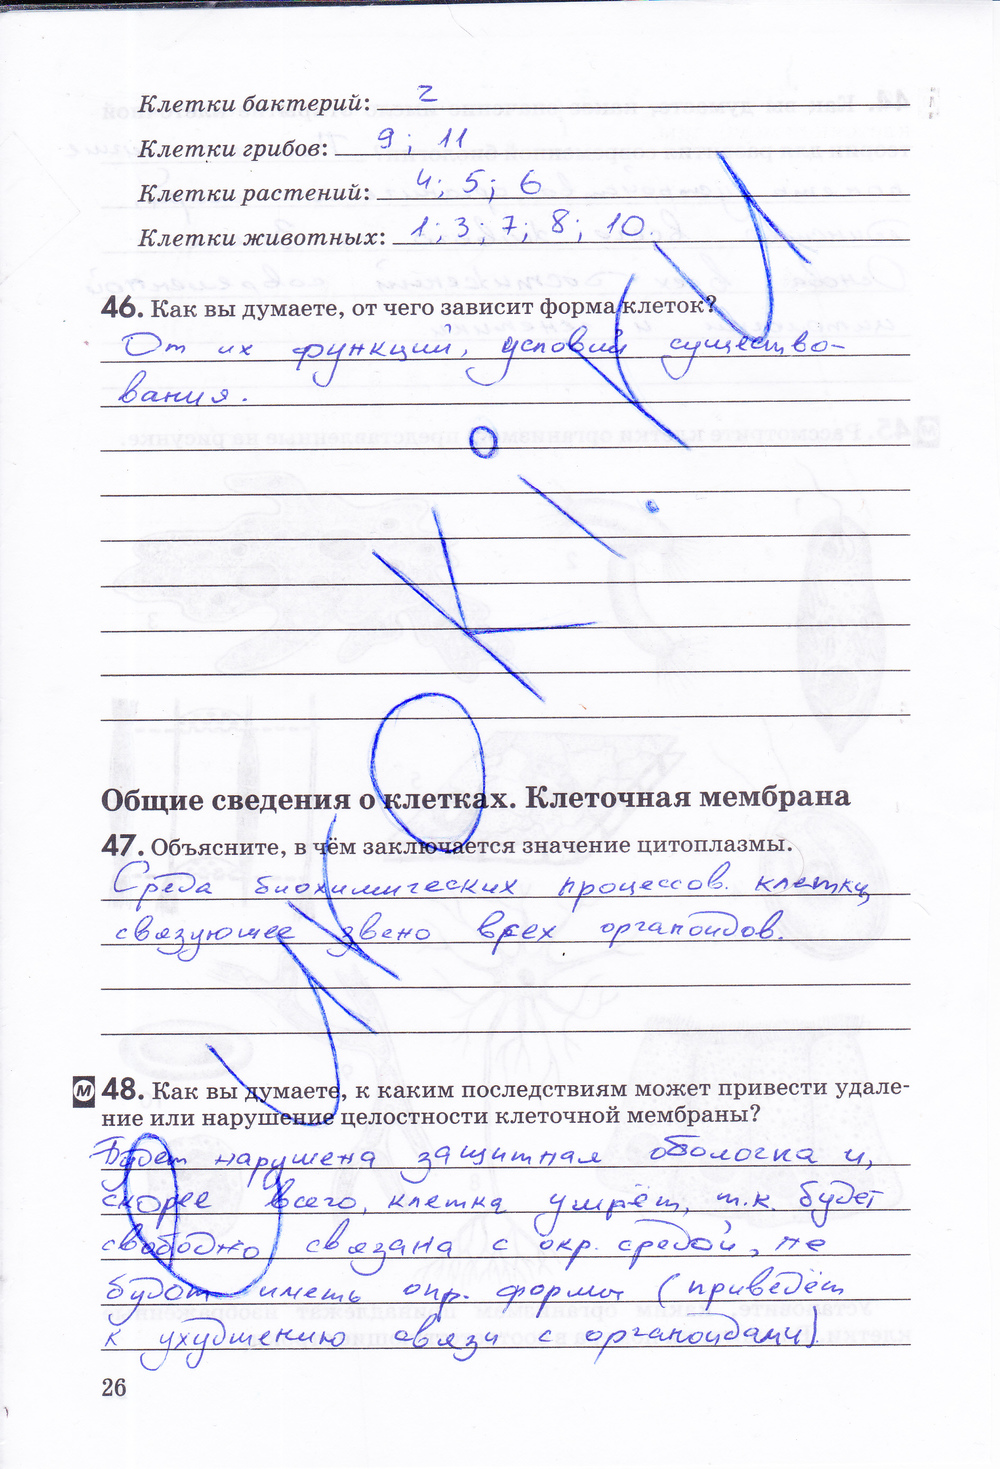 Клетки бактерий: 2
Клетки грибов: 9; 11
Клетки растений: 4; 5; 6
Клетки животных: 1; 3; 7; 8; 10.
46. Как вы думаете, от чего зависит форма клеток?
От их функции, условий существо-
вания.
Общие сведения о клетках. Клеточная мембрана
47. Объясните, в чём заключается значение цитоплазмы.
Среда биохимических процессов. клетки,
связующее звено всех органоидов.
М 48. Как вы думаете, к каким последствиям может привести удале-
ние или нарушение целостности клеточной мембраны?
Будет нарушена защитная оболочка и,
скорее всего, клетка умрёт, т.к. будет
свободно связана с окр. средой, не
будет иметь опр. формы (приведёт
к ухудшению связи с органоидами)
26